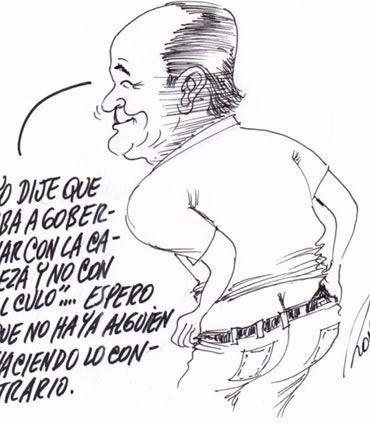 YO DIJE QUE
BA A GOBER-
NAR CON LA CA-
EZA Y NO CON
L CULO".... ESPERO
QUE NO HAYA ALGUIEN
HACIENDO LO CON-
TRARIO.